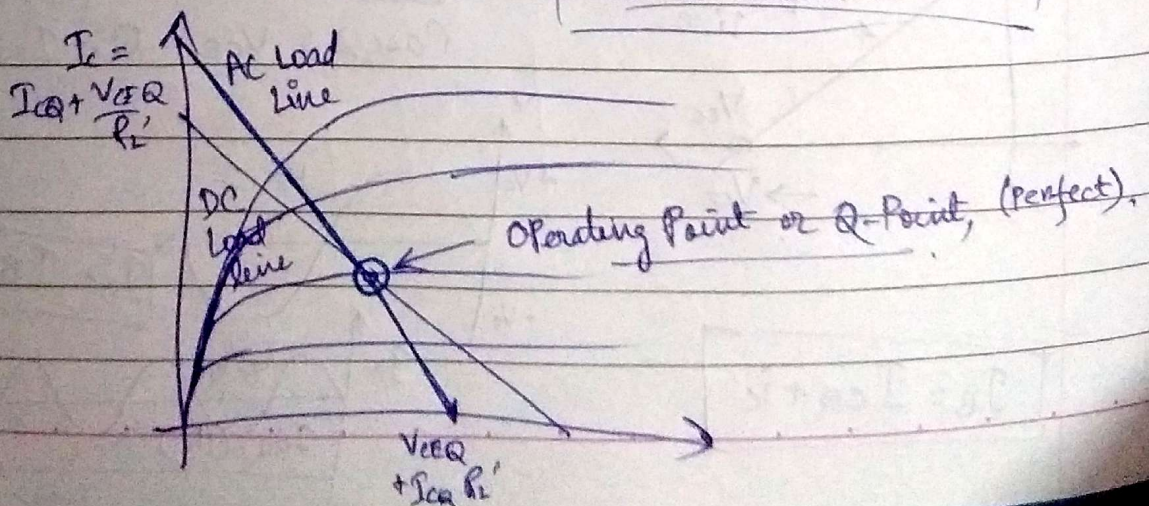 Ic =
ICQ + VCEQ
RL'
AC Load
Line
DC
Load
line
Operating Point or Q-Point, (Perfect).
VCEQ
+ ICQ RL'